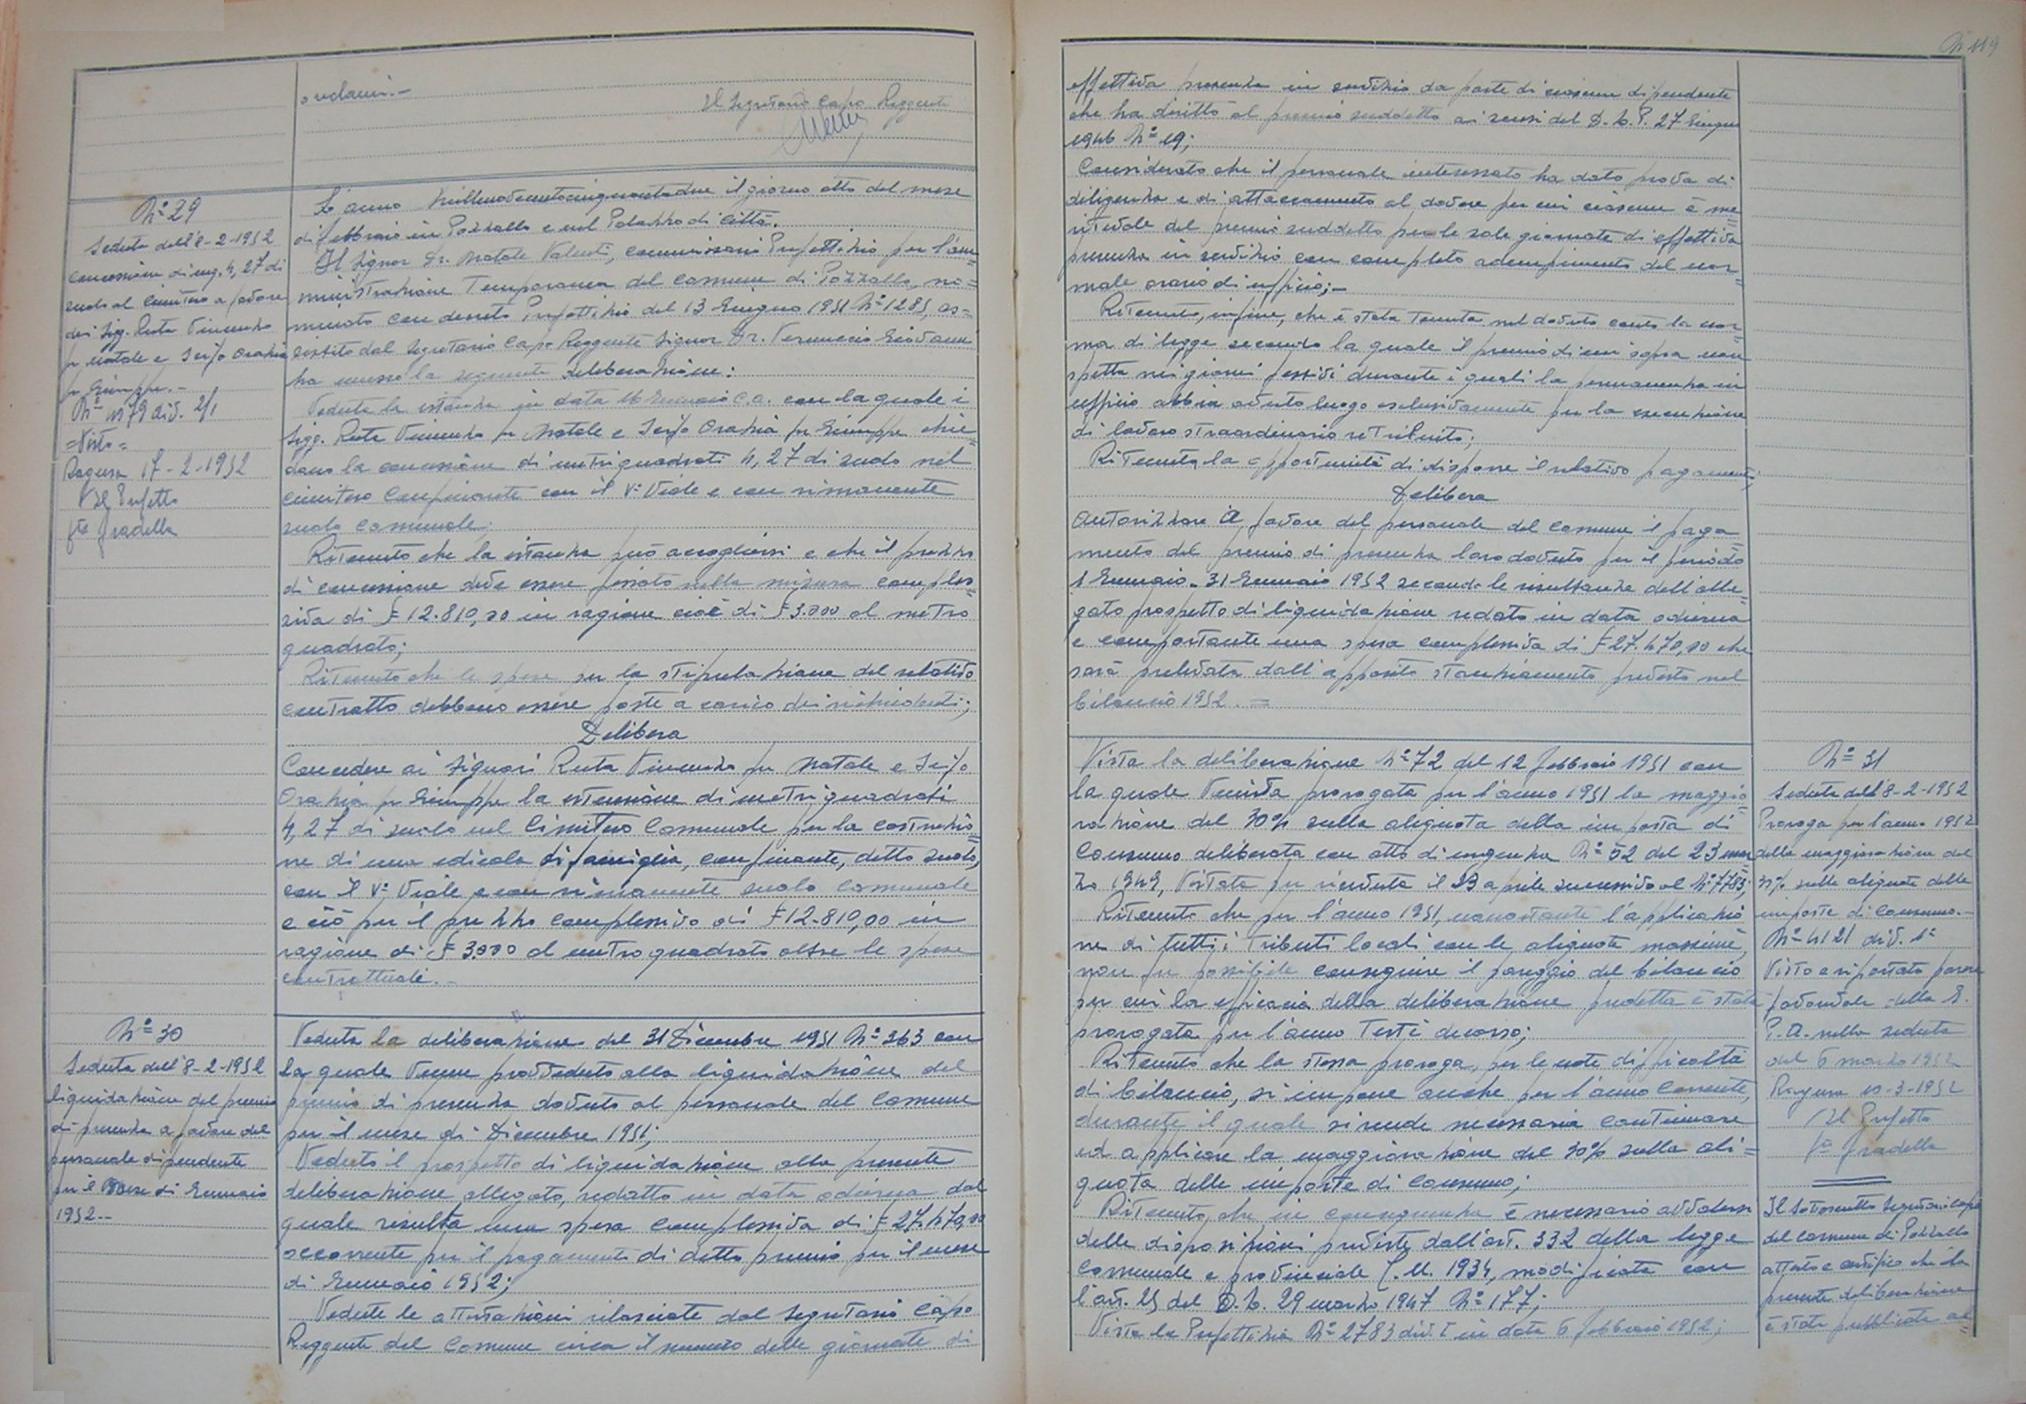 o reclami.-
Il Segretario Capo Reggente
N° 29
Seduta dell'8-2-1952
Concessione di mq. 4,27 di
suolo al Cimitero a favore
dei Sigg. Ruta Vincenzo
fu Natale e Orazia
fu Giuseppe.-
N° 11179 div. 2/1
=Visto=
Ragusa 17-2-1952
Il Prefetto
fto Gradella
L'anno millenovecentocinquantadue il giorno otto del mese
di febbraio in Pozzallo e nel Palazzo di Città.
Il Signor Dr. Natale Valenti, commissario Prefettizio per l'am=
ministrazione Temporanea del Comune di Pozzallo, no=
minato con decreto Prefettizio del 13 Giugno 1951 N° 1285, as=
sistito dal Segretario Capo Reggente Signor Dr. Giovanni
ha emesso la seguente deliberazione:
Veduta la istanza in data 16 Gennaio c.a. con la quale i
Sigg. Ruta Vincenzo fu Natale e Orazia fu Giuseppe chie=
dono la concessione di metri quadrati 4,27 di suolo nel
cimitero confinante con il V° Viale e con rimanente
suolo comunale;
Ritenuto che la istanza può accogliersi e che il prezzo
di concessione deve essere fissato nella misura comples
siva di £ 12.810,00 in ragione cioè di £ 3.000 al metro
quadrato;
Ritenuto che le spese per la stipulazione del relativo
contratto debbono essere poste a carico dei richiedenti;
Delibera
Concedere ai Signori Ruta Vincenzo fu Natale e
Orazia fu Giuseppe la estensione di metri quadrati
4,27 di suolo nel Cimitero Comunale per la costruzio=
ne di una edicola di famiglia, confinante, detto suolo,
con il V° Viale e con rimanente suolo comunale
e ciò per il prezzo complessivo di £ 12.810,00 in
ragione di £ 3.000 al metro quadrato oltre le spese
contrattuali.-
N° 30
Seduta dell'8-2-1952
Liquidazione del premio
di presenza a favore del
personale dipendente
per il mese di Gennaio
1952.-
Veduta la deliberazione del 31 Dicembre 1951 N° 363 con
la quale venne provveduto alla liquidazione del
premio di presenza dovuto al personale del Comune
per il mese di Dicembre 1951;
Veduto il prospetto di liquidazione alla presente
deliberazione allegato, redatto in data odierna dal
quale risulta una spesa complessiva di £ 27.470,00
occorrente per il pagamento di detto premio per il mese
di Gennaio 1952;
Vedute le attestazioni rilasciate dal Segretario Capo
Reggente del Comune circa il numero delle giornate di
N° 119
effettiva presenza in servizio da parte di ciascun dipendente
che ha diritto al premio suddetto ai sensi del D.L.P. 27 Giugno
1946 N° 19;
Considerato che il personale interessato ha dato prova di
diligenza e di attaccamento al dovere per cui ciascuno è me=
ritevole del premio suddetto per le sole giornate di effettiva
presenza in servizio con completo adempimento del nor=
male orario di ufficio;-
Ritenuto, infine, che è stata tenuta nel dovuto conto la nor=
ma di legge secondo la quale il premio di cui sopra non
spetta nei giorni festivi durante i quali la permanenza in
ufficio abbia avuto luogo esclusivamente per la esecuzione
di lavoro straordinario retribuito;
Ritenuta la opportunità di disporre il relativo pagamento;
Delibera
Autorizzare a favore del personale del Comune il paga
mento del premio di presenza loro dovuto per il periodo
1 Gennaio - 31 Gennaio 1952 secondo le risultanze dell'alle=
gato prospetto di liquidazione redatto in data odierna
e comportante una spesa complessiva di £ 27.470,00 che
sarà prelevata dall'apposito stanziamento previsto nel
bilancio 1952.=
Vista la deliberazione N° 72 del 12 febbraio 1951 con
la quale veniva prorogata per l'anno 1951 la maggio=
razione del 30% sulla aliquota della imposta di
Consumo deliberata con atto di urgenza N° 52 del 23 mar
zo 1949, vistata per ricevuta il 13 aprile successivo al N° 7783;
Ritenuto che per l'anno 1951, nonostante l'applicazio
ne di tutti i tributi locali con le aliquote massime,
non fu possibile conseguire il pareggio del bilancio
per cui la efficacia della deliberazione predetta è stata
prorogata per l'anno testè decorso;
Ritenuto che la stessa proroga, per le note difficoltà
di bilancio, si impone anche per l'anno corrente,
durante il quale si rende necessario continuare
ad applicare la maggiorazione del 30% sulla ali=
quota delle imposte di Consumo;
Ritenuto, che in conseguenza è necessario avvalersi
delle disposizioni previste dall'art. 332 della legge
Comunale e provinciale T.U. 1934, modificata con
l'art. 25 del D.L. 29 marzo 1947 N° 177;
Vista la Prefettizia N° 2783 div. I in data 6 febbraio 1952;
N° 31
Seduta dell'8-2-1952
Proroga per l'anno 1952
della maggiorazione del
30% sulle aliquote delle
imposte di Consumo.-
N° 4121 div. 1ª
Visto e riportato parere
favorevole della G.
P.A. nella seduta
del 6 marzo 1952
Ragusa 10-3-1952
Il Prefetto
fto Gradella
Il sottoscritto Segretario Capo
del Comune di Pozzallo
attesta e certifica che la
presente deliberazione
è stata pubblicata al=